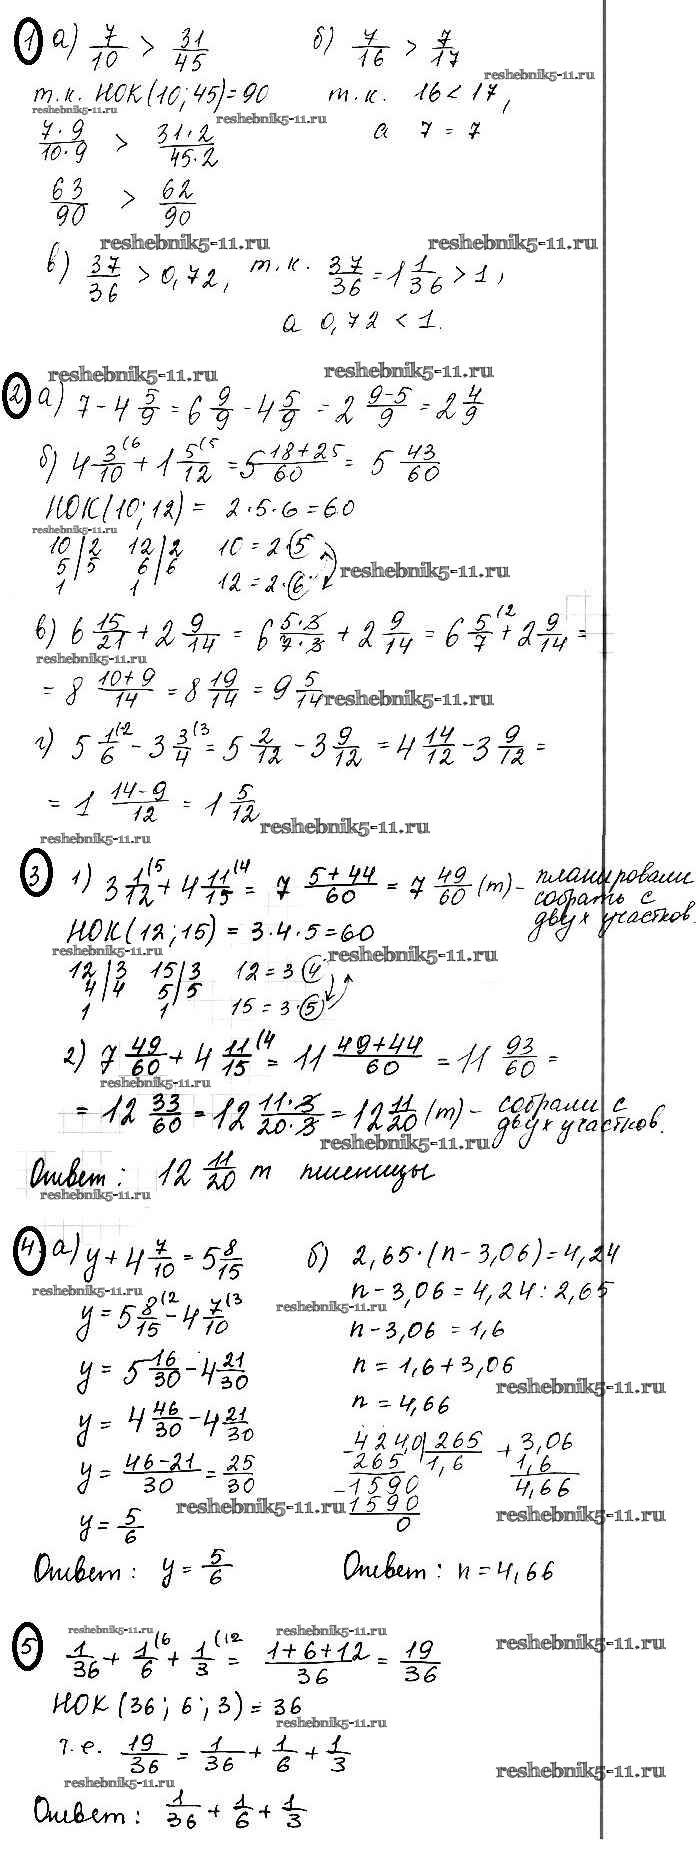 1 а) 7/10 > 31/45   б) 7/16 > 7/17
reshebnik5-11.ru
т.к. НОК(10; 45)=90   т.к. 16 < 17,
reshebnik5-11.ru
7·9/10·9 > 31·2/45·2   а 7 = 7
63/90 > 62/90
reshebnik5-11.ru reshebnik5-11.ru
в) 37/36 > 0,72, т.к. 37/36 = 1 1/36 > 1,
а 0,72 < 1.
reshebnik5-11.ru reshebnik5-11.ru
2 а) 7 - 4 5/9 = 6 9/9 - 4 5/9 = 2 9-5/9 = 2 4/9
б) 4 3/10 (6 + 1 5/12 (5 = 5 18+25/60 = 5 43/60
НОК(10; 12) = 2·5·6 = 60
reshebnik5-11.ru
10|2 12|2 10 = 2·5
5|5 6|6 12 = 2·6
1 1
reshebnik5-11.ru
в) 6 15/21 + 2 9/14 = 6 5·3/7·3 + 2 9/14 = 6 5/7 (2 + 2 9/14 =
reshebnik5-11.ru
= 8 10+9/14 = 8 19/14 = 9 5/14
reshebnik5-11.ru
г) 5 1/6 (2 - 3 3/4 (3 = 5 2/12 - 3 9/12 = 4 14/12 - 3 9/12 =
= 1 14-9/12 = 1 5/12
reshebnik5-11.ru reshebnik5-11.ru
3 1) 3 1/12 (5 + 4 11/15 (4 = 7 5+44/60 = 7 49/60 (т) - планировали
собрать с
двух участков.
НОК(12; 15) = 3·4·5 = 60
reshebnik5-11.ru reshebnik5-11.ru
12|3 15|3 12 = 3·4
4|4 5|5
1 1 15 = 3·5
2) 7 49/60 + 4 11/15 (4 = 11 49+44/60 = 11 93/60 =
reshebnik5-11.ru
= 12 33/60 = 12 11·3/20·3 = 12 11/20 (т) - собрали с
двух участков.
reshebnik5-11.ru
Ответ: 12 11/20 т пшеницы
reshebnik5-11.ru
4 а) y + 4 7/10 = 5 8/15   б) 2,65·(n - 3,06) = 4,24
reshebnik5-11.ru
y = 5 8/15 (2 - 4 7/10 (3   n - 3,06 = 4,24 : 2,65
reshebnik5-11.ru
n - 3,06 = 1,6
y = 5 16/30 - 4 21/30   n = 1,6 + 3,06
reshebnik5-11.ru
y = 4 46/30 - 4 21/30   n = 4,66
y = 46-21/30 = 25/30   - 424,0|265 + 3,06
265 1,6 1,6
- 1590 4,66
reshebnik5-11.ru 1590 reshebnik5-11.ru
y = 5/6   0
Ответ: y = 5/6   Ответ: n = 4,66
reshebnik5-11.ru reshebnik5-11.ru reshebnik5-11.ru
5 1/36 + 1/6 (6 + 1/3 (12 = 1+6+12/36 = 19/36
НОК(36; 6; 3) = 36
reshebnik5-11.ru
т.е. 19/36 = 1/36 + 1/6 + 1/3
reshebnik5-11.ru reshebnik5-11.ru
Ответ: 1/36 + 1/6 + 1/3